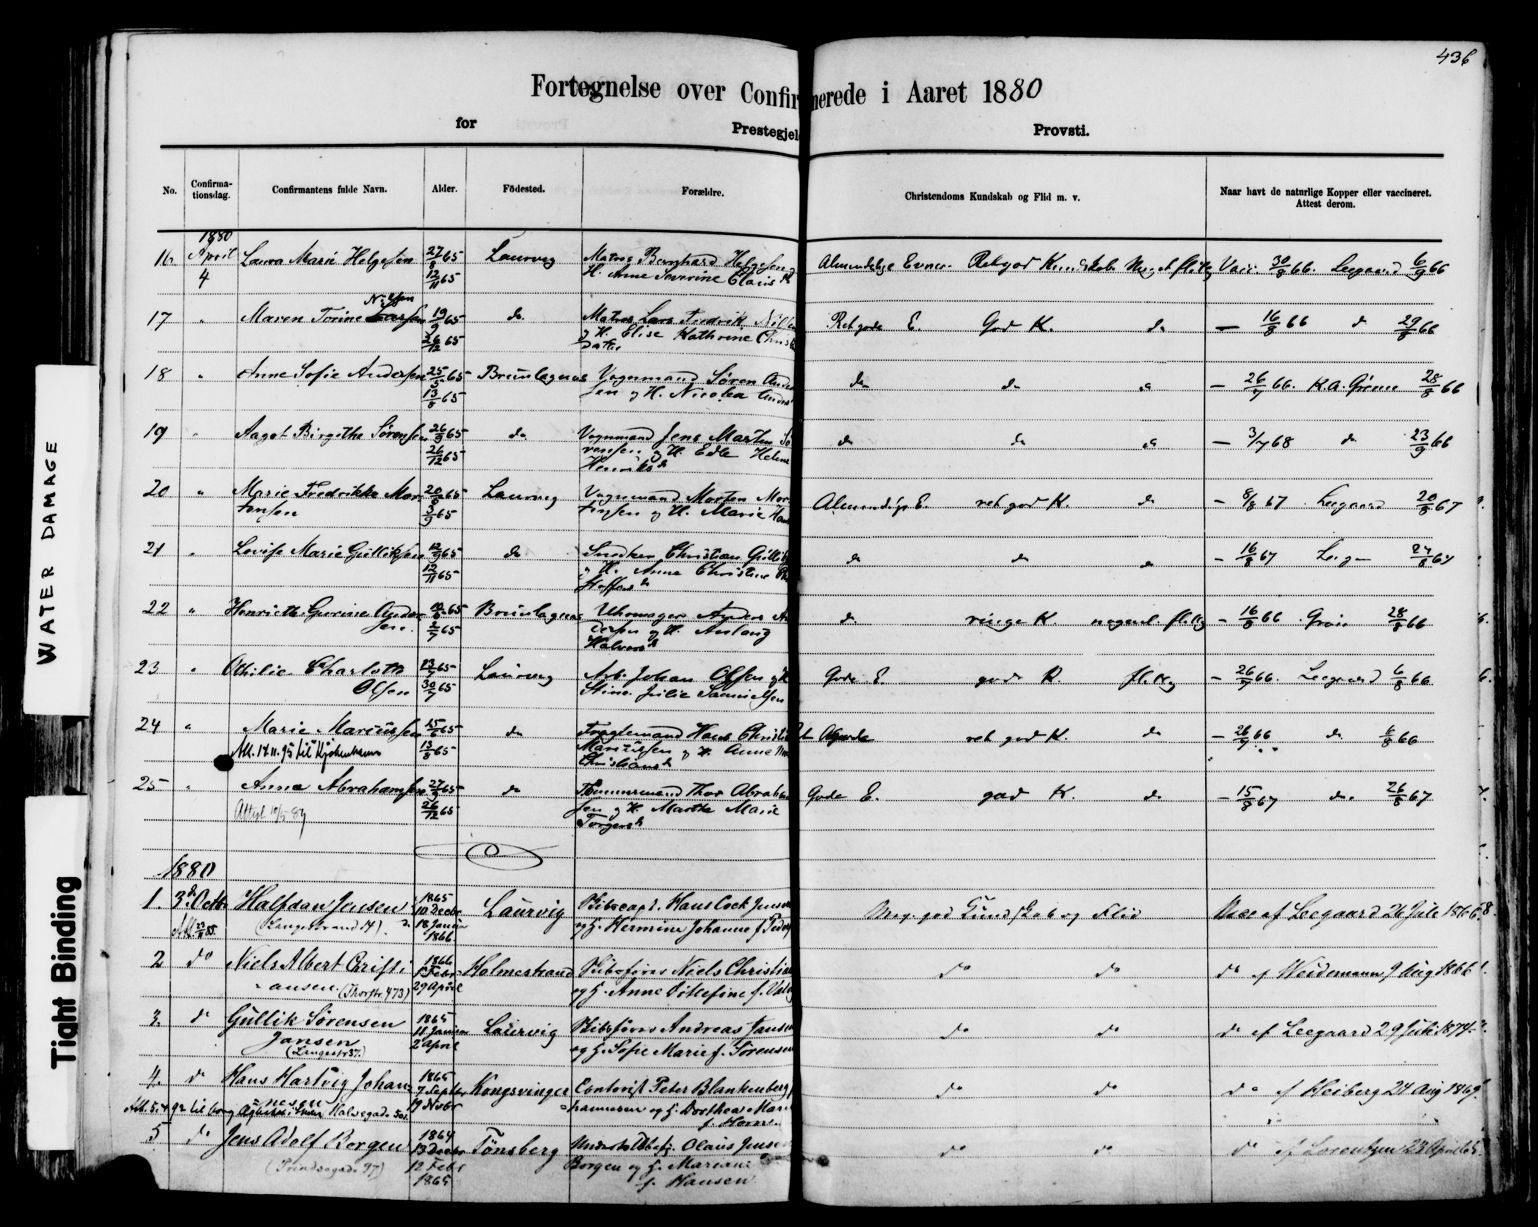 436
Fortegnelse over Confirmerede i Aaret 1880
for Prestegjeld Provsti.
No. Confirmationsdag. Confirmantens fulde Navn. Alder. Födested. Forældre. Christendoms Kundskab og Flid m. v. Naar havt de naturlige Kopper eller vaccineret. Attest derom.
1880
16. April Laura Marie Helgesen 27/8 65 Laurvig Matros Bernhard Helgesen Almindelige Evner. Ret god Kundskab. Meget flittig Vacc. 30/8 66. Leegaard 6/9 66
4 12/11 65 H. Anne Severine Claus
Nilsen
17 " Maren Torine Larsen 19/9 65 do Matros Lars Fredrik Nilsen Ret gode E. God K. do — 16/8 66 do 29/8 66
26/12 65 og H. Elise Kathrine Christ
Datter
18 " Anne Sofie Andersen 25/5 65 Brunlagnes Vognmand Søren Ander do do do — 26/7 66. K.A. Grønn 28/8 66
13/8 65 sen og H. Nicolea Anders
19 " Aagot Birgithe Sørensen 26/9 65 do Vognmand Jens Martin Sø do do do — 3/7 68 do 23/9 66
26/12 65 rensen og H. Edle Helene
Henriksd
20 " Marie Fredrikke Mor 20/8 65 Laurvig Vognmand Morten Mor Almindige E. ret god K. do — 8/8 67 Leegaard 20/8 67
tensen 3/9 65 tensen og H. Marie Han
21 " Lovise Marie Gulliksen 12/9 65 do Snedker Christian Gullik do do do — 16/8 67 Leeg— 27/8 67
12/11 65 og H. Anne Christine
Steffensd
22 " Henriette Gurine Ander 65 Brunlagnes Uhrmager Anders An do ringe K nogenl. flittig — 16/8 66 Grøn 28/8 66
sen. 2/7 65 dersen og H. Anlaug
Halvorsd
23 " Othilie Charlotte 65 Laurvig Arb. Johan Olsen og H. Gode E. gode K flittig — 26/7 66. Leegaard 6/8 66
Olsen 30/7 65 Stine Julie Samuelsen
24 " Marie Marcussen 15/6 65 do Fragtemand Hans Christi Ret god K. do — 26/7 66 do 6/8 66
Att. 17.11.95 til Kjøbenhavn 13/8 65 Marcussen og H. Anne
Christiansd
25 " Anna Abrahamsen 27/9 65 do Tømmermand Thor Abraham Gode E. god K. do — 15/8 67 do. 26/8 67
Attest 10/5 89 26/12 65 sen og H. Marthe Marie
Torgersd
1880
1. 3d Octbr Halfdan Jensen 1865 10 Decbr Laurvig Skibscapt. Hans Cock Jensen Meg. god Kundskab og Flid Vacc. af Leegaard 26 Juli 1866
Att. 22/11 85. (Langestrand 14). 18 Januar 1866 og H. Hermine Johanne f. Peder
2 do Niels Albert Christi 1866 1 Febr Holmestrand Skibsfører Niels Christian do do do af Weidemann 9 Aug 1866
ansen. (Thorstr. 473) 29 April og H. Anne Josefine f.
3. do Gullik Sørensen 1865 11 Januar Laurvig Skibsfører Andreas Jansen do do do af Leegaard 29 Juli 1874
Jansen 2 April og H. Sofie Marie f. Sørensen
(Langestr. 37.)
4. do Hans Hartvig Johan 1865 7 Septbr Kongsvinger Peter Blankenberg do do do af Heiberg 24 Aug 1869
nesen 19 Novbr hannesen og H. Dorthea Marie
Att. 5. 4. 92 til borg.
5 do Jens Adolf Borgen 1864 13 Decbr Tønsberg Olaus Jensen do do do af Lorentzen 28 April 65
(Trindsegade 97) 12 Febr 1865 Borgen og H. Mariane
f. Hansen
WATER DAMAGE
Tight Binding